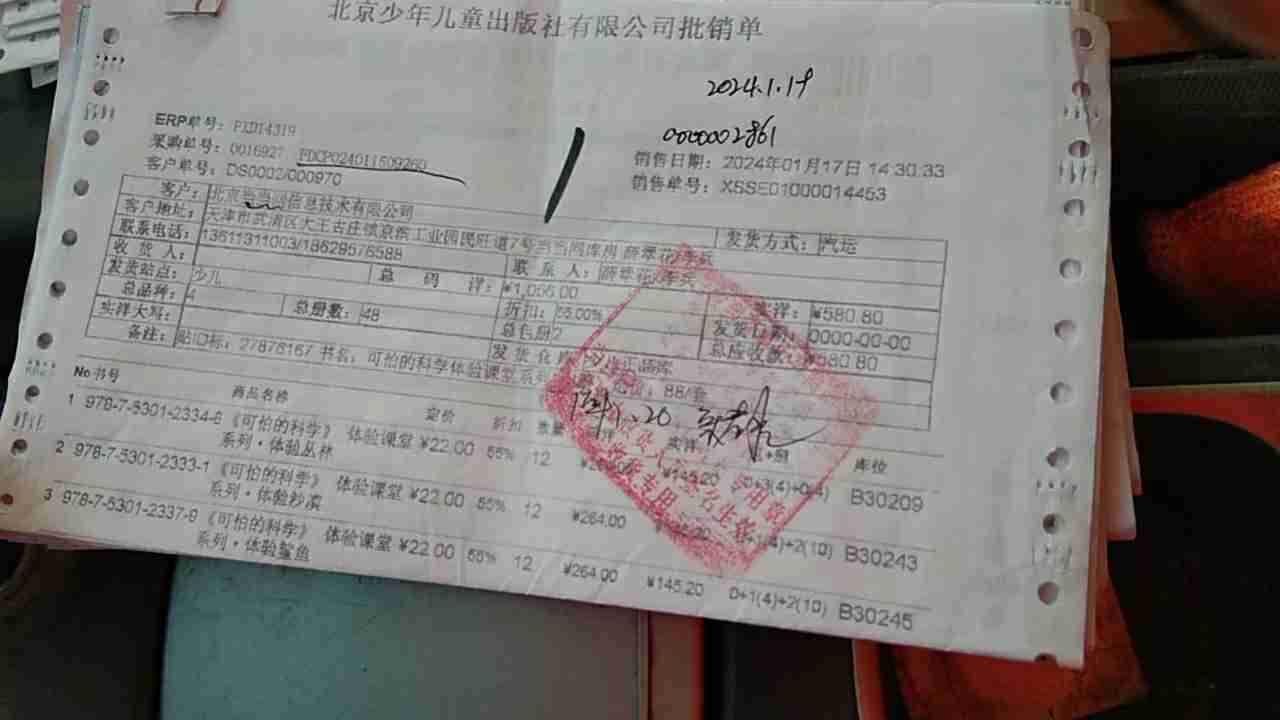 北京少年儿童出版社有限公司批销单
2024.1.19
0000002861
ERP单号: PXD14319
采购单号: 0016927 PDCP024011509260
销售日期: 2024年01月17日 14:30:33
客户单号: DS0002/000970
销售单号: XSSE01000014453
客户: 北京 信息技术有限公司 发货方式: 汽运
客户地址: 天津市武清区大王古庄镇京滨工业园民旺道7号当当网库房
联系电话: 13611311003/18629576588 联系人:
收货人: 总码洋: ¥1,056.00 实洋: ¥580.80
发货站点: 少儿 折扣: 55.00% 发货日期: 0000-00-00
总品种: 4 总册数: 48 总包册2 总应收款: ¥580.80
实洋大写: 发货仓库: 正品库
备注: 贴ID标: 27878167 书名: 可怕的科学体验课堂系列 定价: 88/套
No 书号 商品名称 定价 折扣 数量 实洋 库位
1 978-7-5301-2334-8 《可怕的科学》 体验课堂 ¥22.00 55% 12 ¥145.20 0+3(4)+0(4) B30209
系列·体验丛林
2 978-7-5301-2333-1 《可怕的科学》 体验课堂 ¥22.00 55% 12 ¥264.00 B30243
系列·体验沙漠
3 978-7-5301-2337-9 《可怕的科学》 体验课堂 ¥22.00 55% 12 ¥264.00 ¥145.20 0+1(4)+2(10) B30245
系列·体验鲨鱼